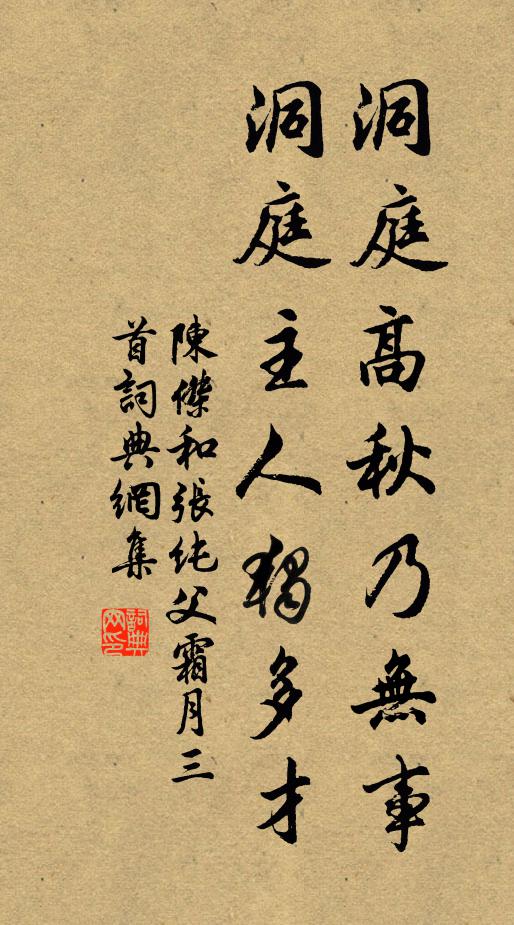 洞庭高秋乃無事
洞庭主人獨多才
陳傑和張純父霜月三
首詞典網集
詞典
网印